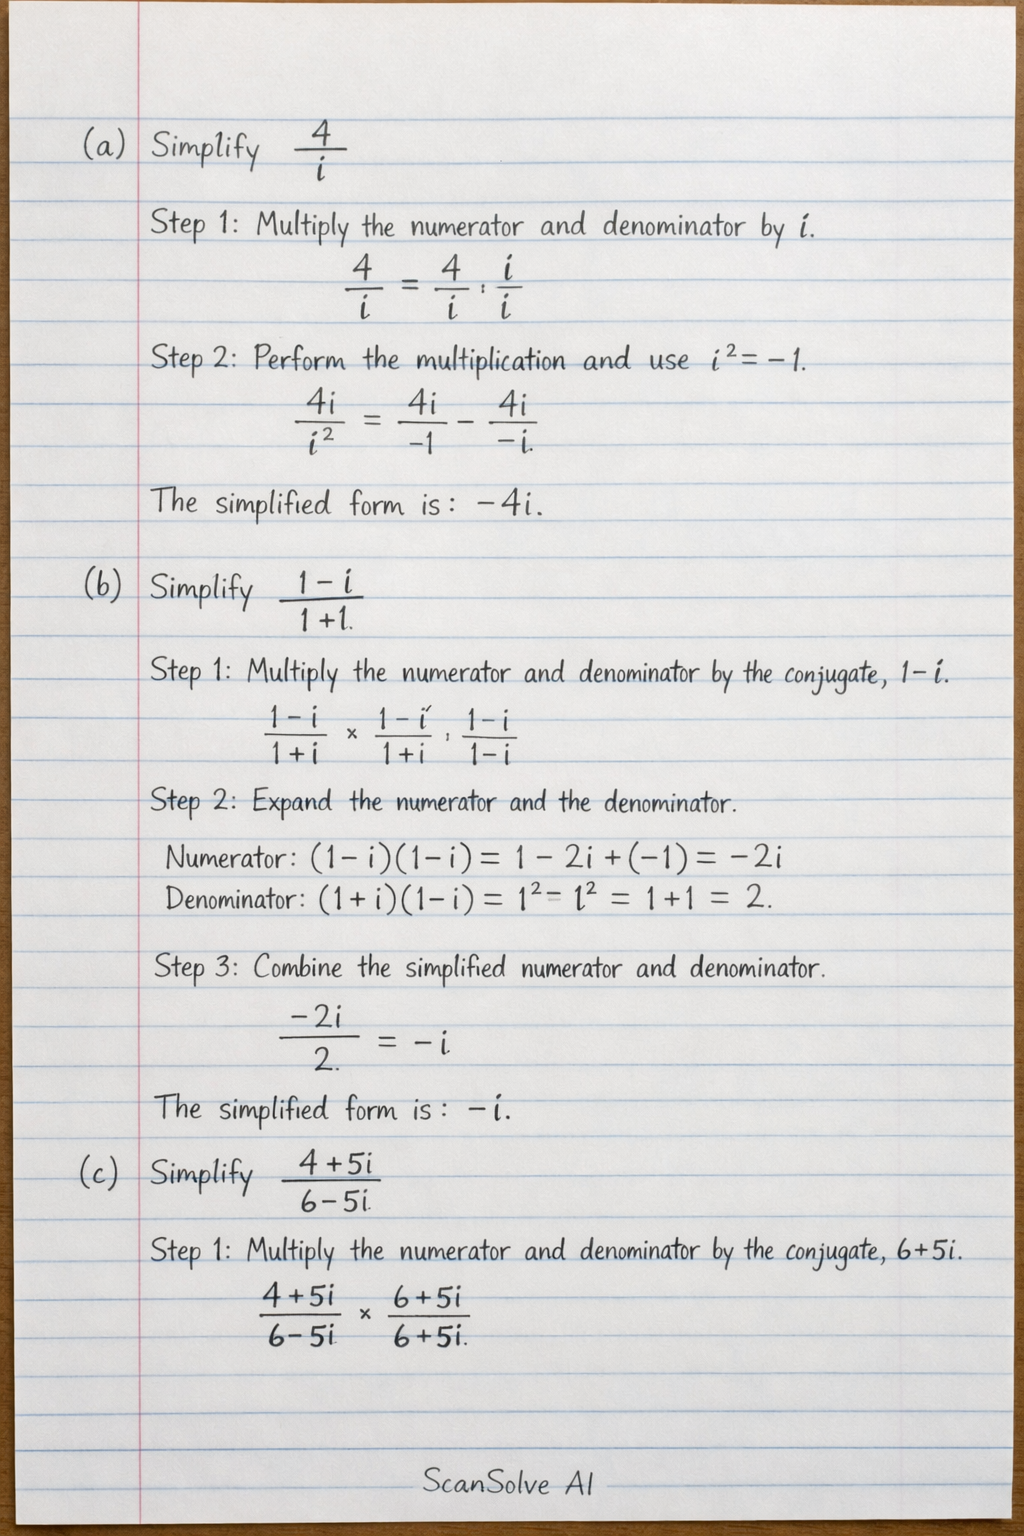 (a) Simplify 4/i
Step 1: Multiply the numerator and denominator by i.
4/i = 4/i · i/i
Step 2: Perform the multiplication and use i² = -1.
4i/i² = 4i/-1 - 4i/-i.
The simplified form is: -4i.
(b) Simplify 1-i/1+1.
Step 1: Multiply the numerator and denominator by the conjugate, 1-i.
1-i/1+i × 1-i/1+i · 1-i/1-i
Step 2: Expand the numerator and the denominator.
Numerator: (1-i)(1-i) = 1 - 2i + (-1) = -2i
Denominator: (1+i)(1-i) = 1² - 1² = 1+1 = 2.
Step 3: Combine the simplified numerator and denominator.
-2i/2. = -i
The simplified form is: -i.
(c) Simplify 4+5i/6-5i.
Step 1: Multiply the numerator and denominator by the conjugate, 6+5i.
4+5i/6-5i × 6+5i/6+5i.
ScanSolve AI